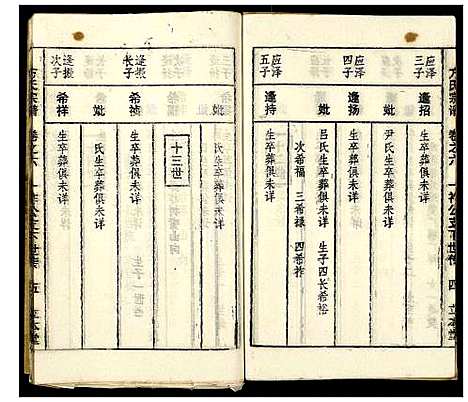 方氏宗谱 卷之六 四 立本堂
应泽三子 逢招 生卒葬俱未详
妣 尹氏生卒葬俱未详
应泽四子 逢扬 生卒葬俱未详
妣 吕氏生卒葬俱未详 生子四长希裕
次希福 三希禄 四希祚
应泽五子 逢持 生卒葬俱未详
妣 氏生卒葬俱未详
十三世
逢振长子 希祯 生卒葬俱未详
妣 氏生卒葬俱未详
逢振次子 希祥 生卒葬俱未详
方氏宗谱 卷之六 五 立本堂